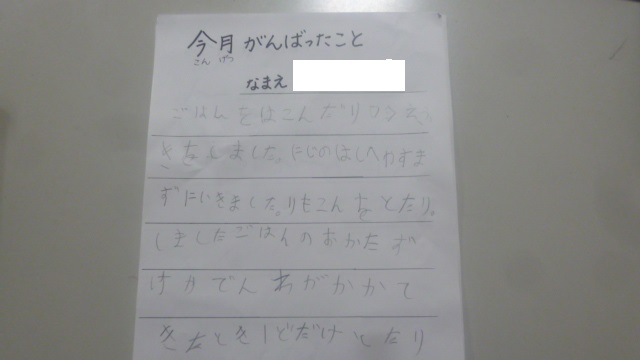 今月がんばったこと
こん げつ
なまえ
ごはんをはこんだりつくえ
きをしました。にじのはしへわすま
ずにいきました。りもこんをとたり。
しましたごはんのおかたずべ
けかでんわがかかて
きたとき1どだけとたり